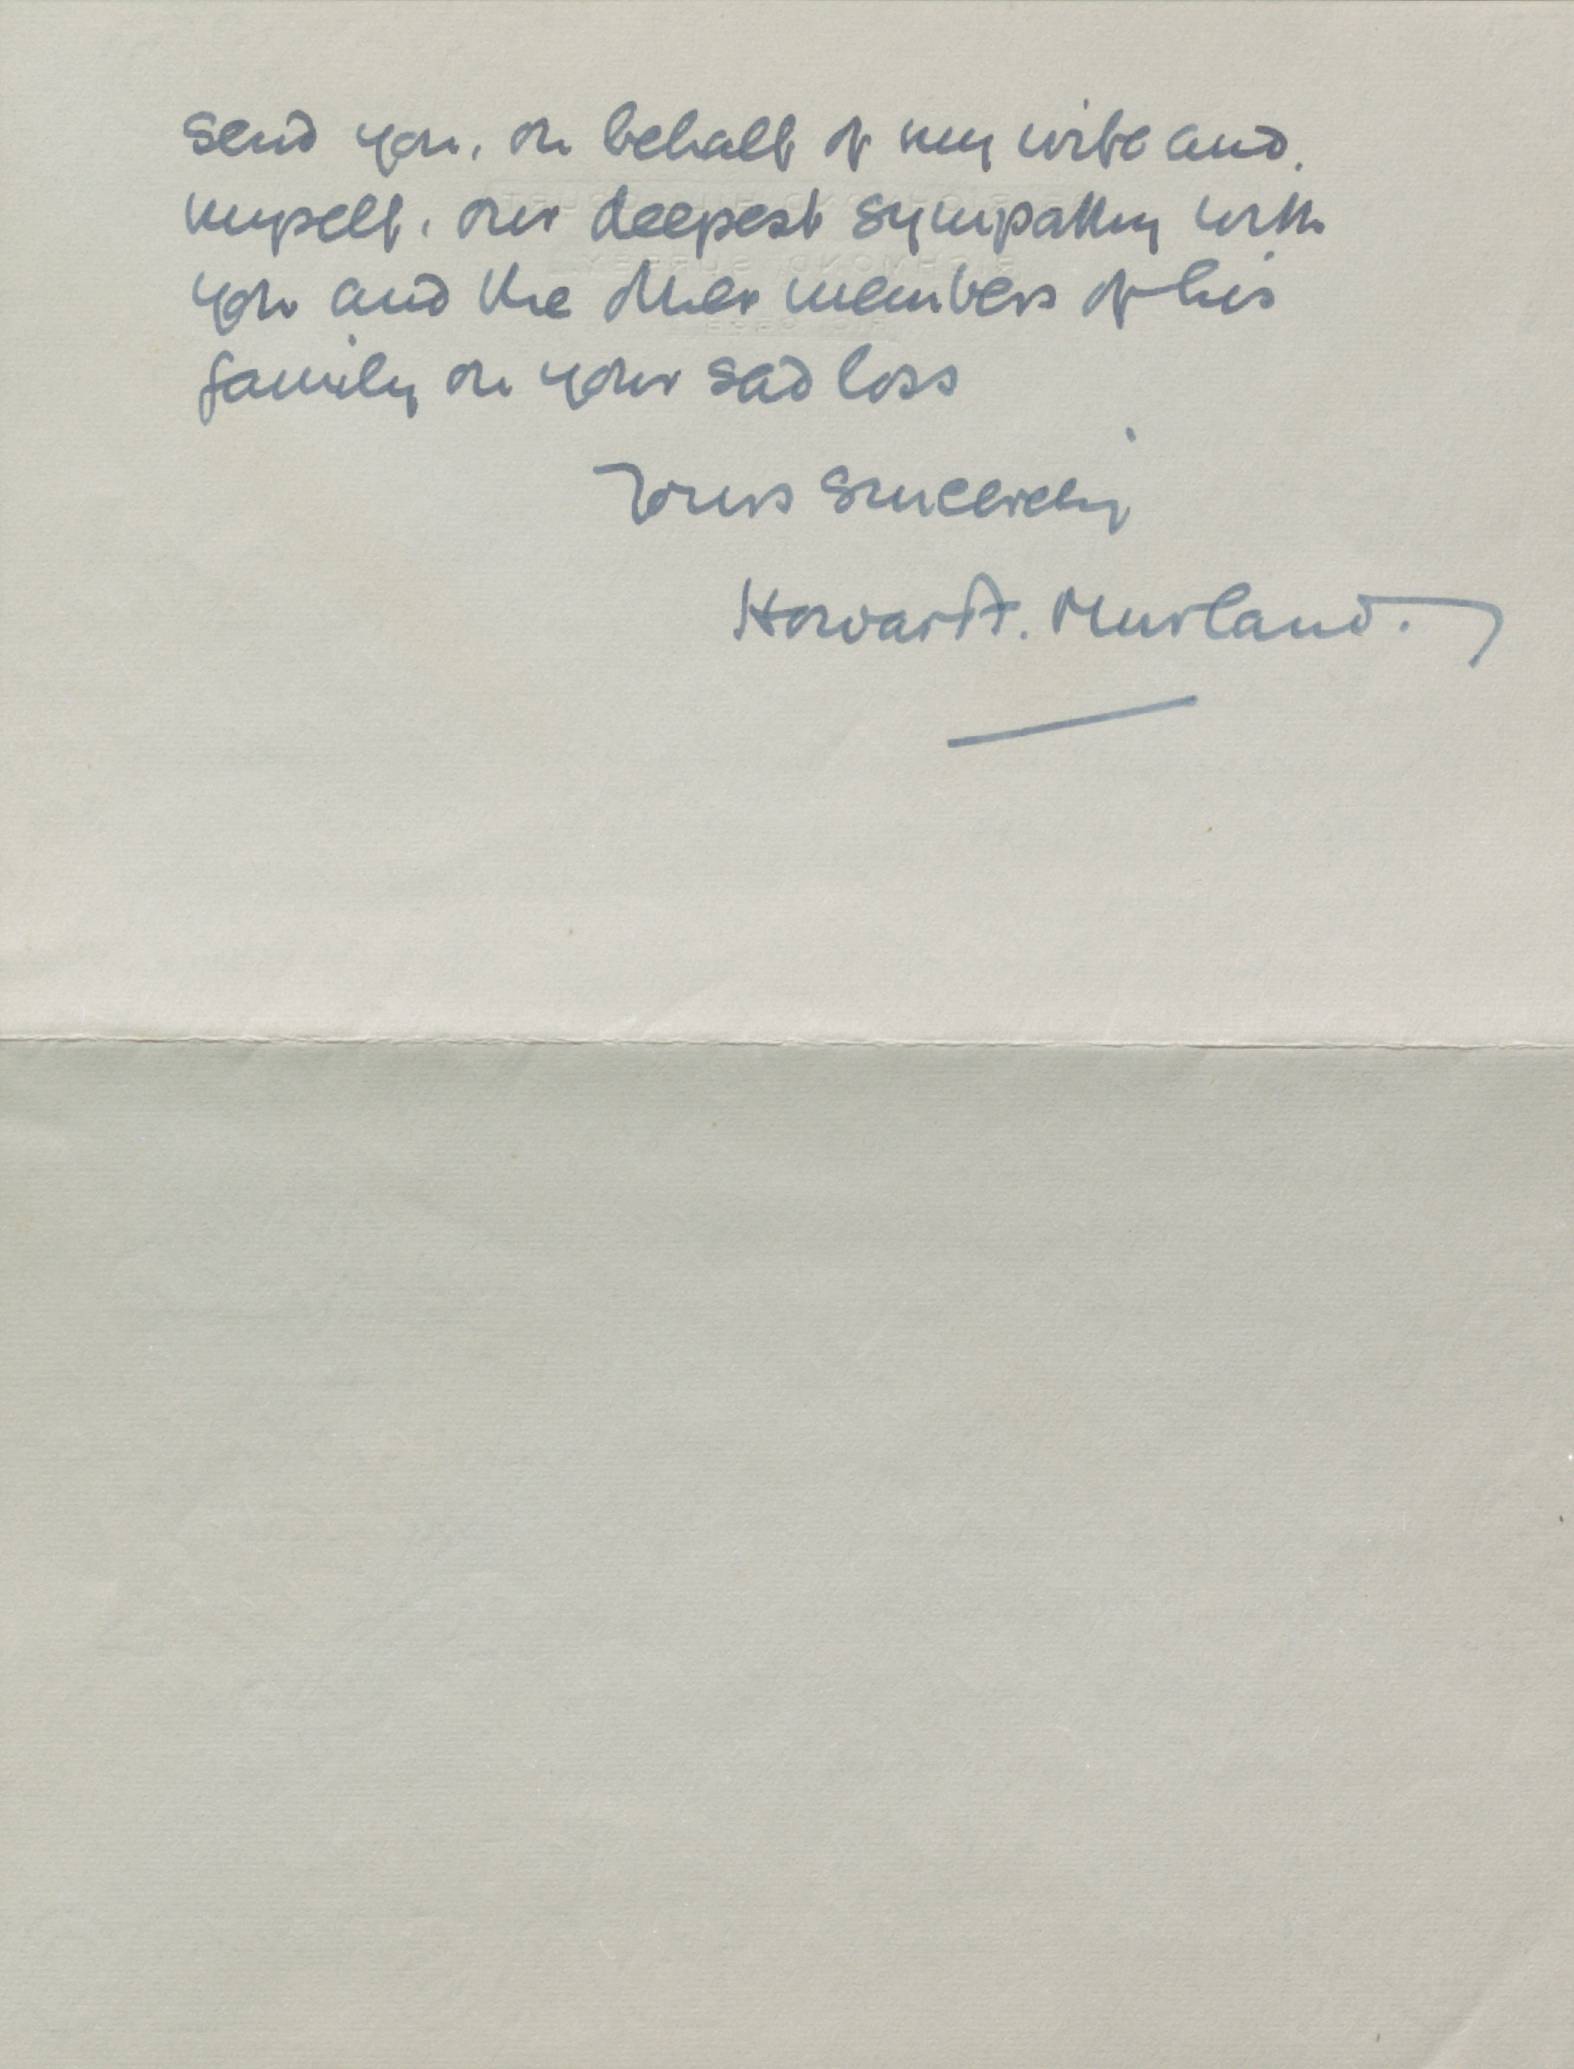 send you, on behalf of my wife and
myself, our deepest sympathy with
you and the other members of his
family on your sad loss
Yours sincerely
Howard. Murland.